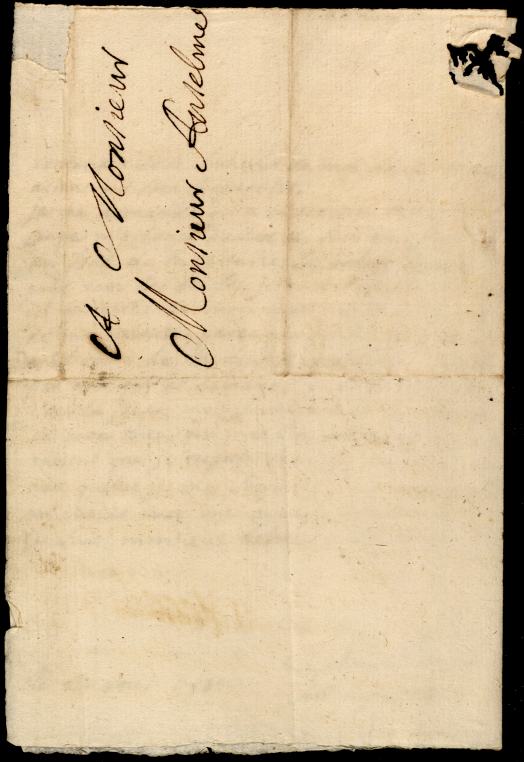 A Monsieur
Monsieur Anselme